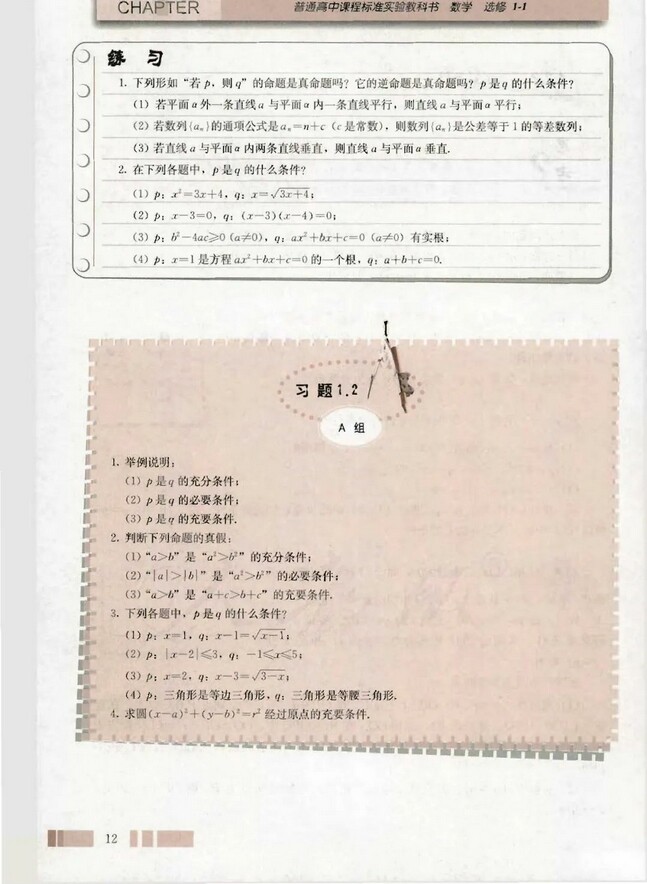 CHAPTER
普通高中课程标准实验教科书 数学 选修 1-1
练 习
1. 下列形如“若 p，则 q”的命题是真命题吗？它的逆命题是真命题吗？p 是 q 的什么条件？
(1) 若平面 α 外一条直线 a 与平面 α 内一条直线平行，则直线 a 与平面 α 平行；
(2) 若数列{aₙ}的通项公式是 aₙ=n+c (c 是常数)，则数列{aₙ}是公差等于 1 的等差数列；
(3) 若直线 a 与平面 α 内两条直线垂直，则直线 a 与平面 α 垂直.
2. 在下列各题中，p 是 q 的什么条件？
(1) p：x²=3x+4，q：x=√(3x+4)；
(2) p：x−3=0，q：(x−3)(x−4)=0；
(3) p：b²−4ac≥0 (a≠0)，q：ax²+bx+c=0 (a≠0) 有实根；
(4) p：x=1 是方程 ax²+bx+c=0 的一个根，q：a+b+c=0.
习题1.2
A 组
1. 举例说明：
(1) p 是 q 的充分条件；
(2) p 是 q 的必要条件；
(3) p 是 q 的充要条件.
2. 判断下列命题的真假：
(1)“a>b”是“a²>b²”的充分条件；
(2)“|a|>|b|”是“a²>b²”的必要条件；
(3)“a>b”是“a+c>b+c”的充要条件.
3. 下列各题中，p 是 q 的什么条件？
(1) p：x=1，q：x−1=√(x−1)；
(2) p：|x−2|≤3，q：−1≤x≤5；
(3) p：x=2，q：x−3=√(3−x)；
(4) p：三角形是等边三角形，q：三角形是等腰三角形.
4. 求圆(x−a)²+(y−b)²=r² 经过原点的充要条件.
12